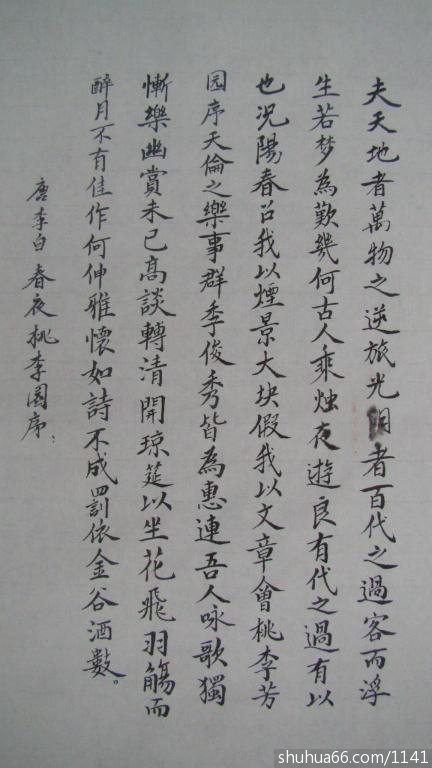 夫天地者萬物之逆旅光阴者百代之過客而浮
生若梦為歎幾何古人乘烛夜遊良有代之過有以
也况陽春召我以煙景大块假我以文章會桃李芳
园序天倫之樂事群季俊秀皆為惠連吾人咏歌獨
慚樂幽賞未已高談轉清開琼筵以坐花飛羽觴而
醉月不有佳作何伸雅懷如詩不成罰依金谷酒數。
唐李白春夜桃李園序:
shuhua66.com/1141